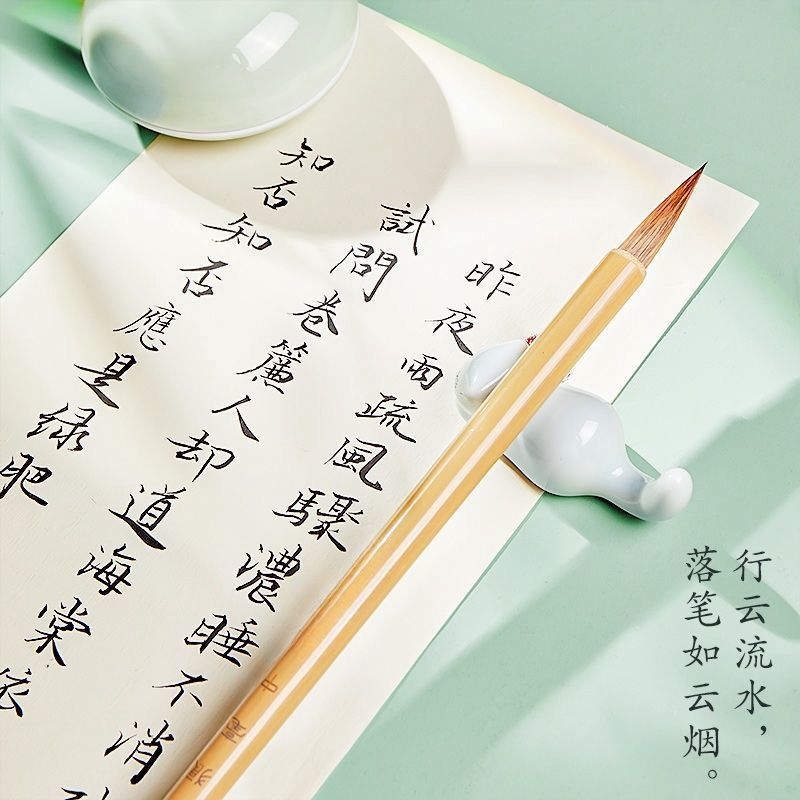 昨夜雨疏風驟濃睡不消
試問卷簾人却道海棠依
知否知否應是绿肥
行云流水，
落笔如云烟。